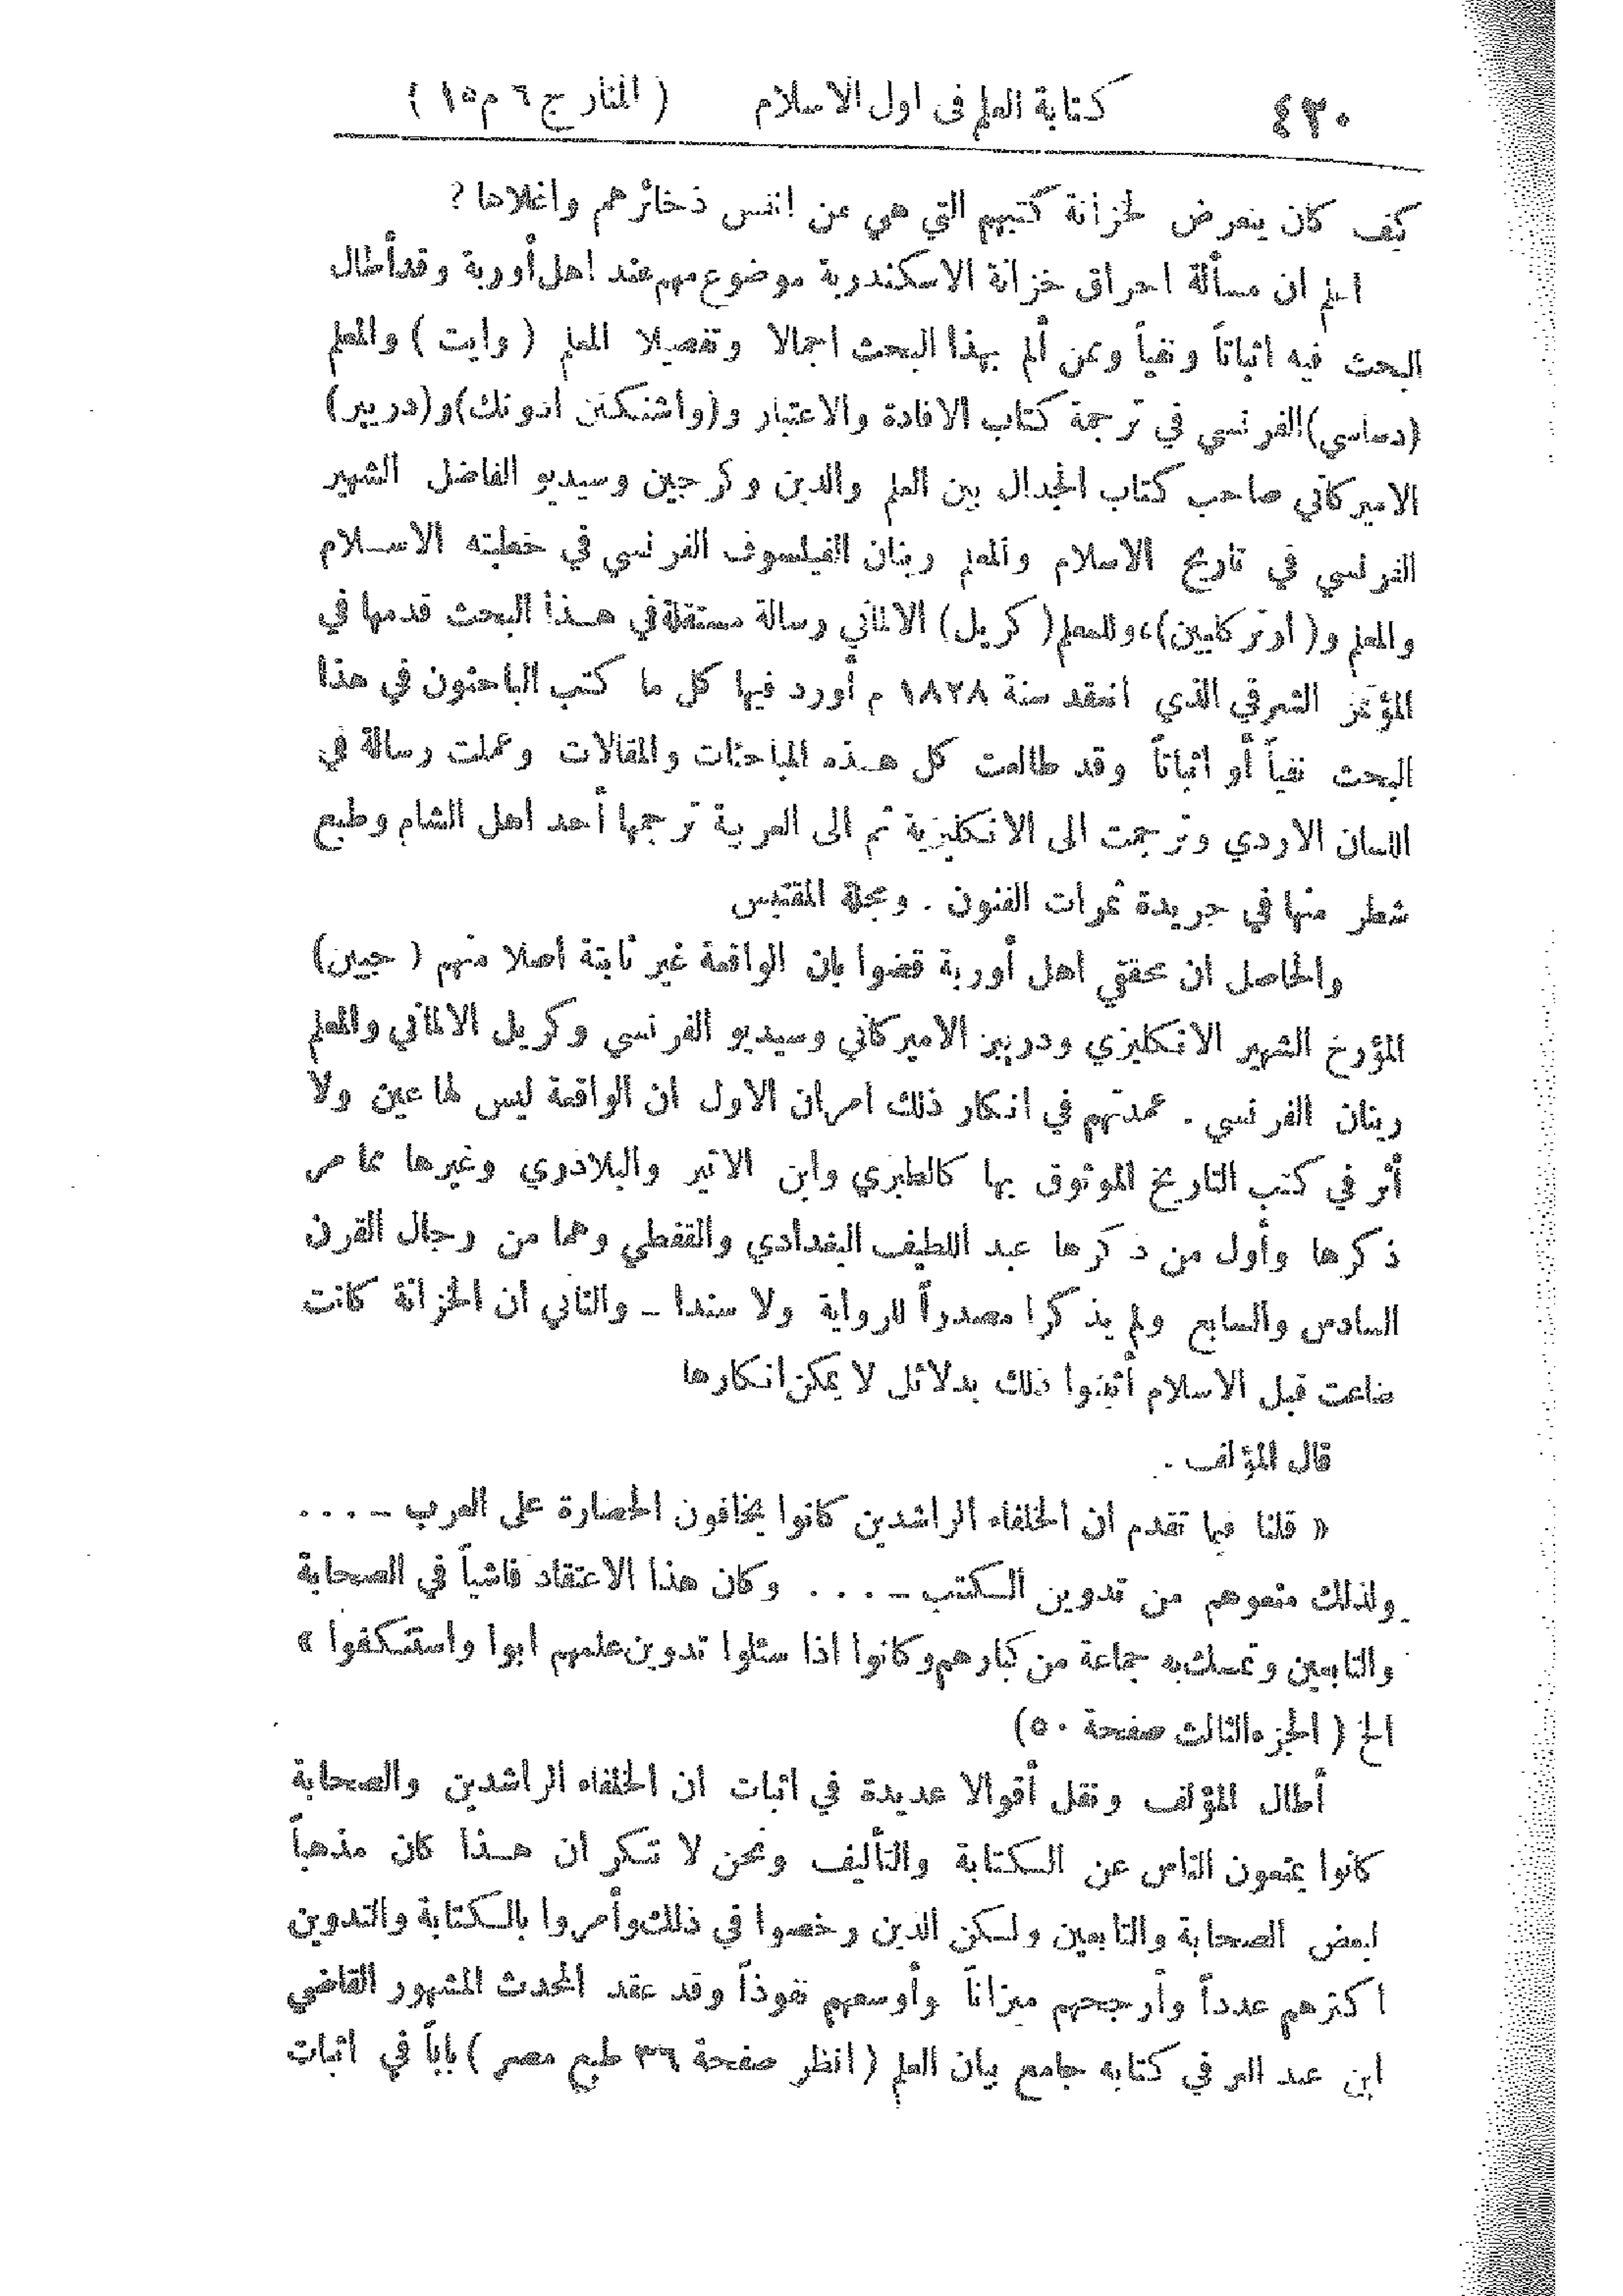 ٤٣٠ كتابة العلم فى اول الاسلام ( المنار ج ٦ م ١٥ )
كيف كان يتعرض لخزانة كتبهم التي هي عن انفس ذخائرهم واغلاها ؟
اعلم ان مسألة احراق خزانة الاسكندرية موضوع مهم عند اهل أوربة وقد أطال
البحث فيه اثباتاً ونفياً وممن ألم بهذا البحث اجمالا وتفصيلا المعلم ( وايت ) والمعلم
(دساسي) الفرنسي في ترجمة كتاب الافادة والاعتبار و(واشنكتن ادونك) و(دريبر)
الاميركاني صاحب كتاب الجدال بين العلم والدين وكرجين وسيديو الفاضل الشهير
الفرنسي في تاريخ الاسلام والمعلم رينان الفيلسوف الفرنسي في خطبته الاسلام
والعلم و( ارتركليين)، وللمعلم ( كريل) الالماني رسالة مستقلة في هذا البحث قدمها في
المؤتمر الشرقي الذي انعقد سنة ١٨٢٨ م أورد فيها كل ما كتب الباحثون في هذا
البحث نفياً أو اثباتاً وقد طالعت كل هذه المباحثات والمقالات وعملت رسالة في
اللسان الاردي وترجمت الى الانكليزية ثم الى العربية ترجمها أحد اهل الشام وطبع
شطر منها في جريدة ثمرات الفنون . ومجلة المقتبس
والحاصل ان محققي اهل أوربة قضوا بان الواقعة غير ثابتة اصلا منهم ( جيبن)
المؤرخ الشهير الانكليزي ودريبر الاميركاني وسيديو الفرنسي وكريل الالماني والمعلم
رينان الفرنسي . عمدتهم في انكار ذلك امران الاول ان الواقعة ليس لها عين ولا
أثر في كتب التاريخ الموثوق بها كالطبري وابن الاثير والبلاذري وغيرها مما مر
ذكرها وأول من ذكرها عبد اللطيف البغدادي والقفطي وهما من رجال القرن
السادس والسابع ولم يذكرا مصدراً للرواية ولا سندا ــ والثاني ان الخزانة كانت
ضاعت قبل الاسلام أثبتوا ذلك بدلائل لا يمكن انكارها
قال المؤلف .
« قلنا فيما تقدم ان الخلفاء الراشدين كانوا يخافون الحضارة على العرب ــ . . .
ولذلك منعوهم من تدوين الكتب ــ . . . وكان هذا الاعتقاد فاشياً في الصحابة
والتابعين وتمسك به جماعة من كبارهم وكانوا اذا سئلوا تدوين علمهم ابوا واستنكفوا »
الخ ( الجزء الثالث صفحة ٥٠)
أطال المؤلف ونقل أقوالا عديدة في اثبات ان الخلفاء الراشدين والصحابة
كانوا يمنعون الناس عن الكتابة والتأليف ونحن لا ننكر ان هذا كان مذهباً
لبعض الصحابة والتابعين ولكن الذين رخصوا في ذلك وأمروا بالكتابة والتدوين
اكثرهم عدداً وأرجحهم ميزاناً وأوسعهم نفوذاً وقد عقد المحدث المشهور القاضي
ابن عبد البر في كتابه جامع بيان العلم ( انظر صفحة ٣٦ طبع مصر ) باباً في اثبات